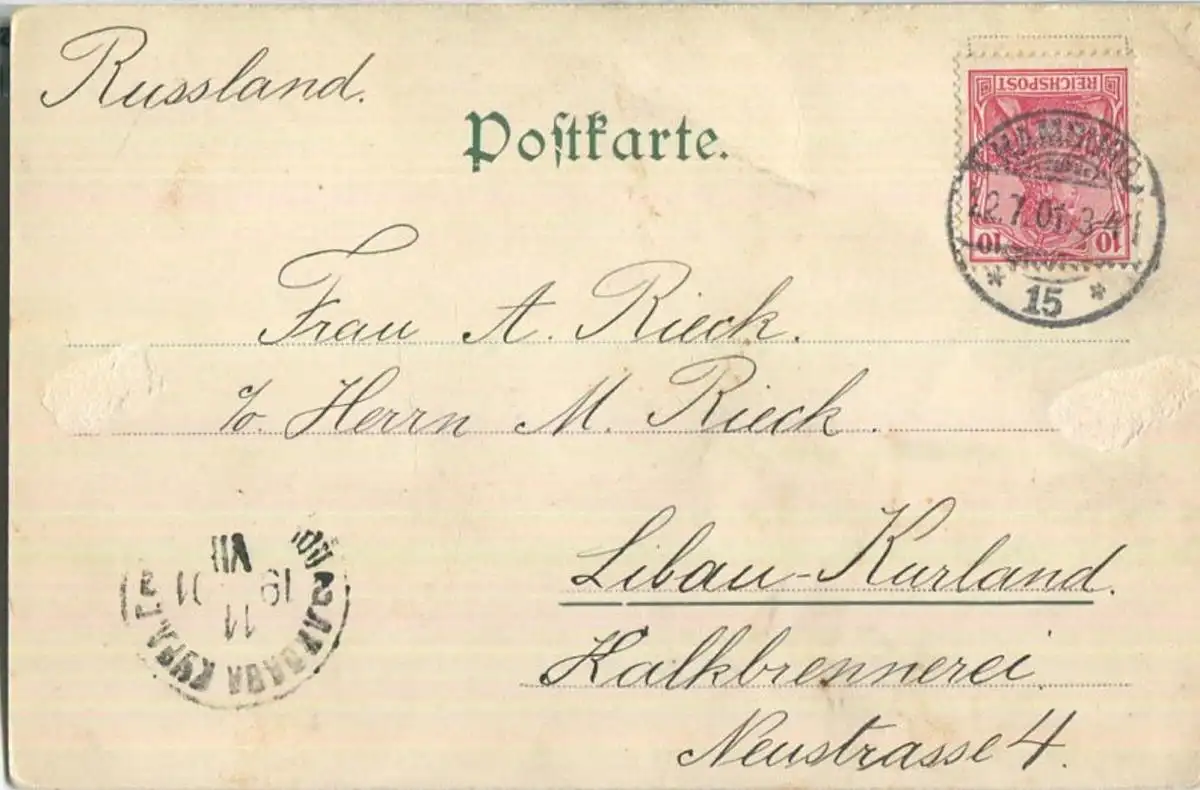 Russland.
Postkarte.
REICHSPOST
10 10
HAMBURG
22.7.01. 3-4
* 15 *
Frau A. Rieck.
c/o. Herrn M. Rieck.
Libau-Kurland.
Kalkbrennerei
Neustrasse 4.
VII
19 01
11
ЛИБАВА КУРЛ.